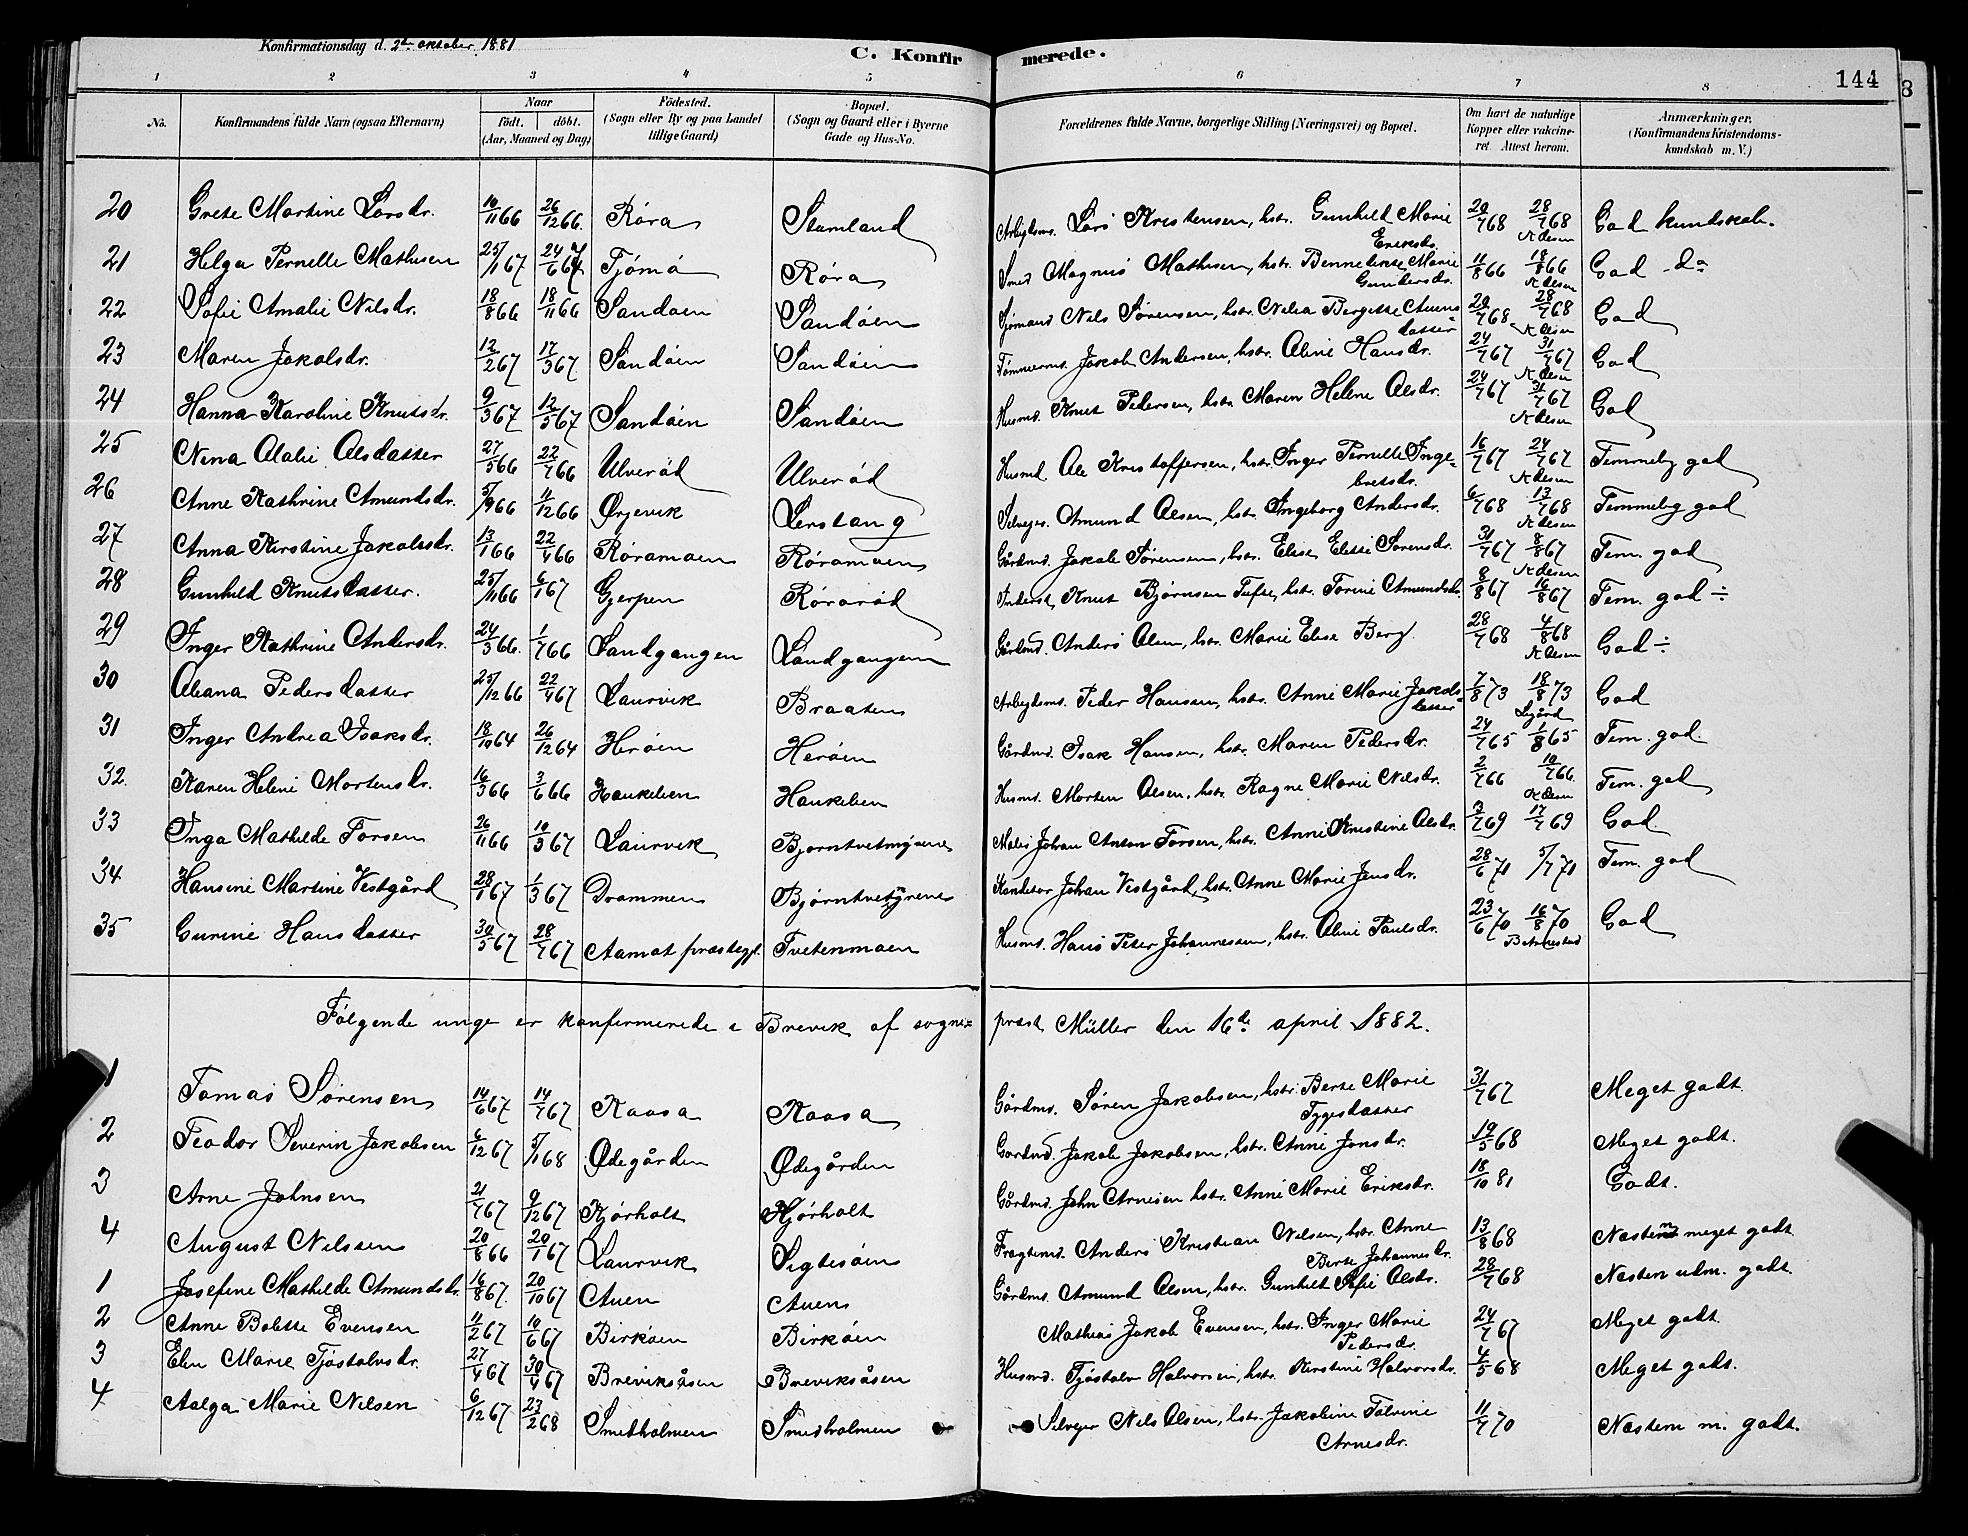 Konfirmationsdag d. 2den oktober 1881
C. Konfirmerede.
144
1 2 3 4 5 6 7 8
No. Konfirmandens fulde Navn (ogsaa Efternavn) Naar födt. döbt. (Aar, Maaned og Dag) Födested. (Sogn eller By og paa Landet tillige Gaard) Bopæl. (Sogn og Gaard eller i Byerne Gade og Hus-No. Forældrenes fulde Navne, borgerlige Stilling (Næringsvei) og Bopæl. Om havt de naturlige Kopper eller vakcineret. Attest herom. Anmærkninger. (Konfirmandens Kristendomskundskab m. V.)
20 Grete Martine Larsdr. 10/11 66 26/12 66 Røra Stamland Arbejdsmd. Lars Kristensen, hstr. Gunhild Marie Eriksdr. 20/7 68 28/7 68 N Olsen God kundskab.
21 Helga Pernelle Mathisen 25/1 67 24/6 67 Tjømø Røra Smed Magnus Mathisen, hstr. Bennedikte Marie Gundersdr. 11/8 66 18/8 66 N Olsen God do
22 Sofie Amalie Nilsdr. 18/8 66 18/11 66 Sandøen Sandøen Sjømand Nils Sørensen, hstr. Nilia Bergitte Amundsdatter 20/7 68 28/7 68 N Olsen God
23 Maren Jakobsdr. 12/2 67 17/3 67 Sandøen Sandøen Tømmermd. Jakob Andersen, hstr. Oline Hansdr. 24/7 67 31/7 67 N Olsen God
24 Hanna Karoline Knutsdr. 9/3 67 12/5 67 Sandøen Sandøen Husmd. Knut Pedersen, hstr. Maren Helene Olsdr. 24/7 67 31/7 67 N Olsen God
25 Nina Olalie Olsdatter 27/5 66 22/7 66 Ulverød Ulverød Husmd Ole Kristoffersen, hstr. Inger Pernille Ingebretsdr. 16/7 67 24/7 67 N Olsen Temmelig god
26 Anne Kathrine Amundsdr. 5/9 66 11/12 66 Ørjevik Lerstang Selvejer Amund Olsen, hstr. Ingeborg Andersdr. 6/7 68 13/7 68 N Olsen Temmelig god
27 Anna Kirstine Jakobsdr. 13/1 66 22/4 66 Røramoen Røramoen Gårdmd. Jakob Sørensen, hstr. Elise Eletse Sørensdr. 31/7 67 8/8 67 N Olsen Tem. god
28 Gunhild Knutsdatter. 25/11 66 6/1 67 Gjerpen Rørarød Inderst Knut Bjørnsen Tufte, hstr. Torine Amundsdr. 8/8 67 16/8 67 Tem. god ÷
29 Inger Kathrine Andersdr. 24/3 66. 1/7 66 Landgangen Landgangen Gårdmd. Anders Olsen, hstr. Marie Elise Berg 28/7 68 4/8 68 N Olsen God ÷
30 Oleana Pedersdatter 25/12 66 22/4 67 Laurvik Braaten Arbejdsmd. Peder Hansen, hstr. Anne Marie Jakobsdatter 7/8 73 18/8 73 God
31 Inger Andrea Isaksdr. 18/10 64 26/12 64 Herøen Herøen Gårdmd. Isak Hansen, hstr. Maren Pedersdr. 24/7 65 1/8 65 Tem. god.
32. Karen Helene Mortensdr. 16/3 66 3/6 66 Haukelien Haukelien Husmd. Morten Olsen, hstr. Ragne Marie Nilsdr. 2/7 66 10/7 66 N Olsen Tem. god
33 Inga Mathilde Torsen 26/11 66 10/3 67 Laurvik Bjørntvetmyrene Maler Johan Anton Torsen, hstr. Anne Kristine Olsdr. 3/7 69 17/7 69 God
34 Hansine Martine Vestgård 28/1 67 1/3 67 Drammen Bjørntvetmyrene Konditor Johan Vestgård, hstr. Anne Marie Jensdr. 28/6 70 5/7 70 Tem. god
35 Gurine Hansdatter 30/5 67 28/7 67 Aamot præstegj. Tvetenmoen Husmd. Hans Peter Johannessen, hstr. Oline Paulsdr. 23/6 70 16/8 70 God
Følgende unge er konfirmerede i Brevik af sogneprest Müller den 16de april 1882.
1 Tomas Sørensen 14/6 67 14/7 67 Kaasa Kaasa Gårdmd. Søren Jakobsen, hstr. Berte Marie Tygesdatter 31/7 67 Meget godt.
2 Teodor Severin Jakobsen 6/12 67 5/1 68 Ødegården Ødegården Gårdmd. Jakob Jakobsen, hstr. Anne Jonsdr. 19/5 68 Meget godt.
3 Arne Johnsen 21/7 67 9/12 67 Kjørholt Kjørholt Gårdmd. John Arnesen hstr. Anne Marie Eriksdr. 18/10 81 Godt.
4 August Nilssen 20/8 66 20/1 67 Laurvik Sigtesøen Fragtemd. Anders Kristian Nilsen, hstr. Anne Berte Johannesdr. 13/8 68 Næsten meget godt
1 Josefine Mathilde Amundsdr. 16/8 67. 20/10 67 Auen Auen Gårdmd. Amund Olsen, hstr. Gunhild Sofie Olsdr. 28/7 68 Næsten udm. godt.
2 Anne Bolette Evensen 11/2 67 10/6 67 Birkøen Birkøen Mathias Jakob Evensen, hstr. Inger Marie Pedersdr. 24/7 67 Meget godt.
3 Elen Marie Tjøstolvsdr. 27/4 67 30/4 67 Breviksåsen Breviksåsen Husmd. Tjøstolv Halvorsen, hstr. Kirstine Halvorsdr. 4/5 68 Meget godt.
4 Aalga Marie Nilsen 6/12 67 23/2 68 Smedholmen Smedholmen Selvejer Nils Olsen, hstr. Jakobine Tolvine Arnesdr. 11/7 70 Næsten m. godt.